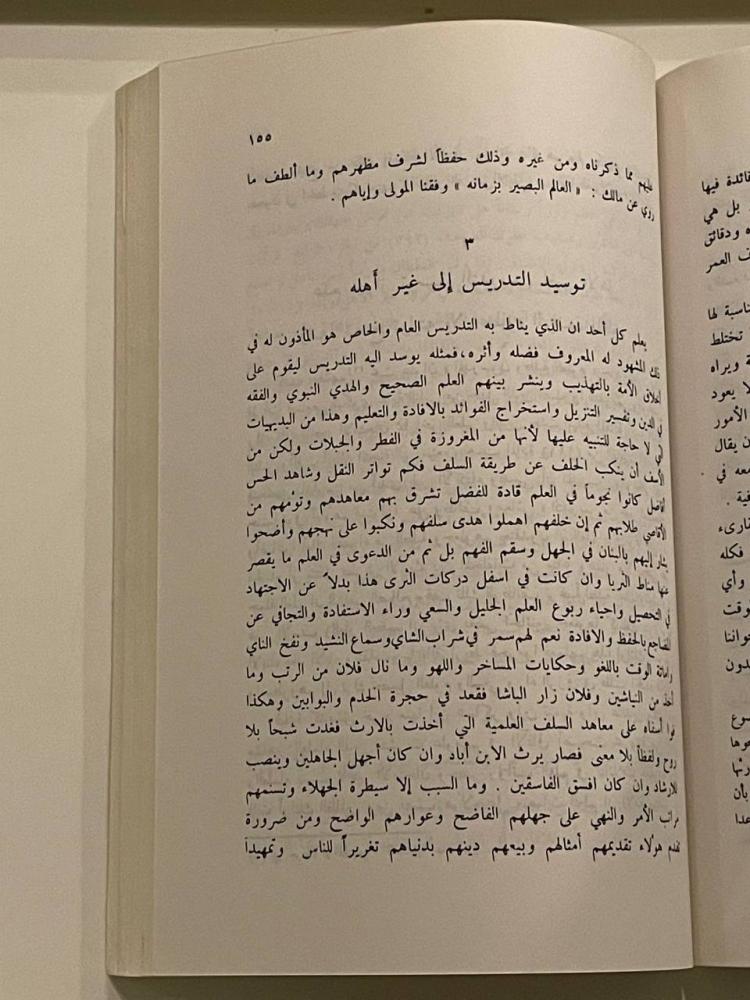 ١٥٥
عليهم مما ذكرناه ومن غيره وذلك حفظاً لشرف مظهرهم وما ألطف ما
روي عن مالك : « العالم البصير بزمانه » وفقنا المولى وإياهم .
٣
توسيد التدريس إلى غير أهله
يعلم كل أحد ان الذي يناط به التدريس العام والخاص هو المأذون له في
ذلك المشهود له المعروف فضله وأثره، فمثله يوسد اليه التدريس ليقوم على
أخلاق الأمة بالتهذيب وينشر بينهم العلم الصحيح والهدي النبوي والفقه
في الدين وتفسير التنزيل واستخراج الفوائد بالافادة والتعليم وهذا من البديهيات
التي لا حاجة للتنبيه عليها لأنها من المغروزة في الفطر والجبلات ولكن من
الأسف أن ينكب الخلف عن طريقة السلف فكم تواتر النقل وشاهد الحس
أفاضل كانوا نجوماً في العلم قادة للفضل تشرق بهم معاهدهم وتؤمهم من
الأقاصي طلابهم ثم إن خلفهم اهملوا هدى سلفهم ونكبوا على نهجهم وأضحوا
يشار إليهم بالبنان في الجهل وسقم الفهم بل ثم من الدعوى في العلم ما يقصر
عنها مناط الثريا وان كانت في اسفل دركات الثرى هذا بدلاً عن الاجتهاد
في التحصيل واحياء ربوع العلم الجليل والسعي وراء الاستفادة والتجافي عن
المضاجع بالحفظ والافادة نعم لهم سمر في شراب الشاي وسماع النشيد ونفخ الناي
واماتة الوقت باللغو وحكايات المساخر واللهو وما نال فلان من الرتب وما
أخذ من النياشين وفلان زار الباشا فقعد في حجرة الخدم والبوابين وهكذا
فوا أسفاه على معاهد السلف العلمية التي أخذت بالارث فغدت شبحاً بلا
روح ولفظاً بلا معنى فصار يرث الابن أباه وان كان أجهل الجاهلين وينصب
للارشاد وان كان افسق الفاسقين . وما السبب إلا سيطرة الجهلاء وتسنمهم
مراتب الأمر والنهي على جهلهم الفاضح وعوارهم الواضح ومن ضرورة
تقدم هؤلاء تقديمهم أمثالهم وبيعهم دينهم بدنياهم تغريراً للناس وتمهيداً